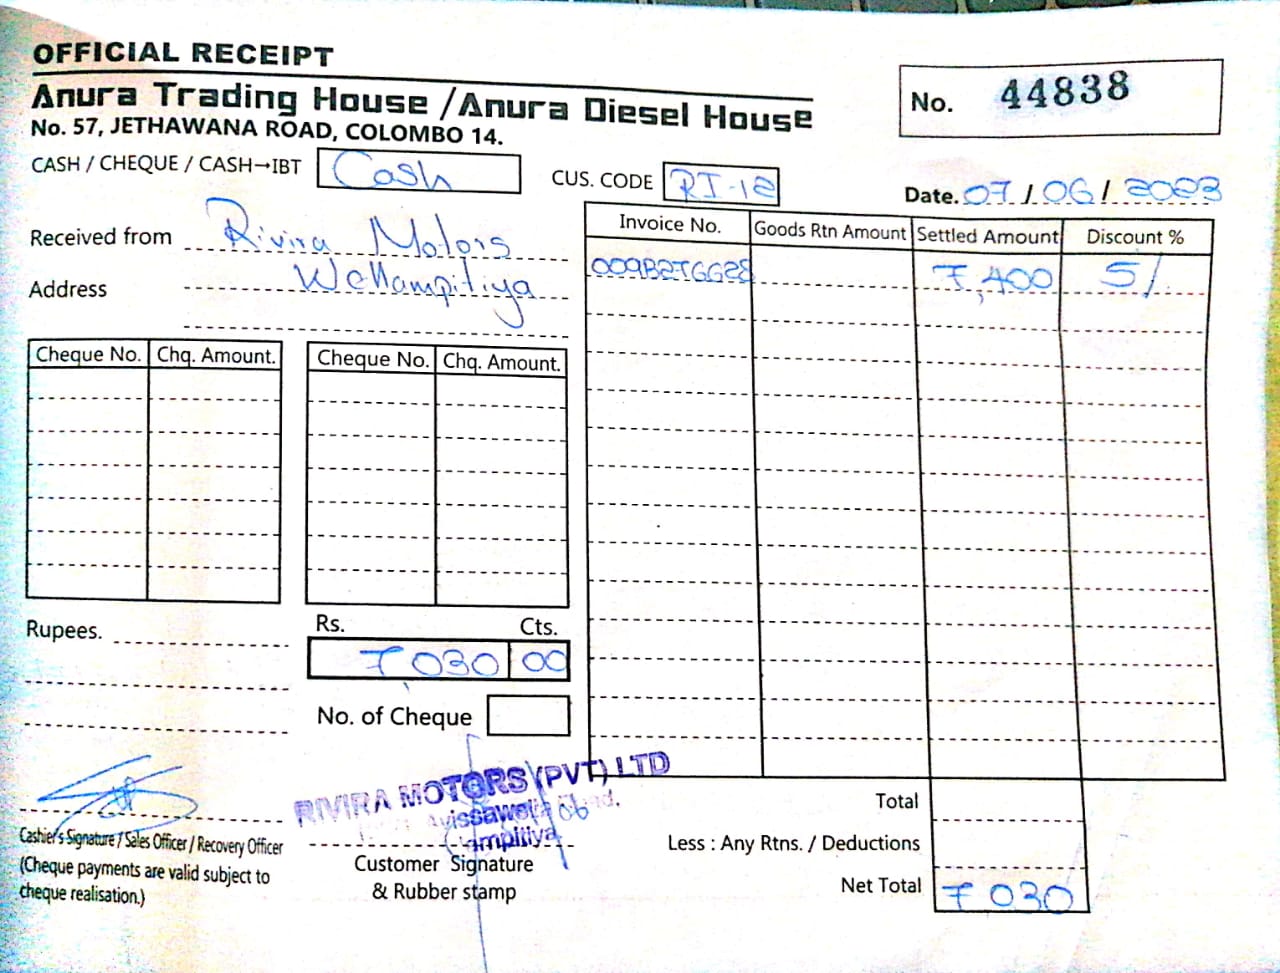 OFFICIAL RECEIPT
Anura Trading House / Anura Diesel House
No. 57, JETHAWANA ROAD, COLOMBO 14.
No. 44838
CASH / CHEQUE / CASH→IBT Cash
CUS. CODE RI-12
Date. 07 / 06 / 2023
Received from Rivira Motors
Address Wellampitiya
Invoice No. Goods Rtn Amount Settled Amount Discount %
7,400 5/
Cheque No. Chq. Amount. Cheque No. Chq. Amount.
Rupees.
Rs. Cts.
7,030 00
No. of Cheque
RIVIRA MOTORS (PVT) LTD
Cashier's Signature / Sales Officer / Recovery Officer
(Cheque payments are valid subject to
cheque realisation.)
Customer Signature
& Rubber stamp
Total
Less : Any Rtns. / Deductions
Net Total 7 030